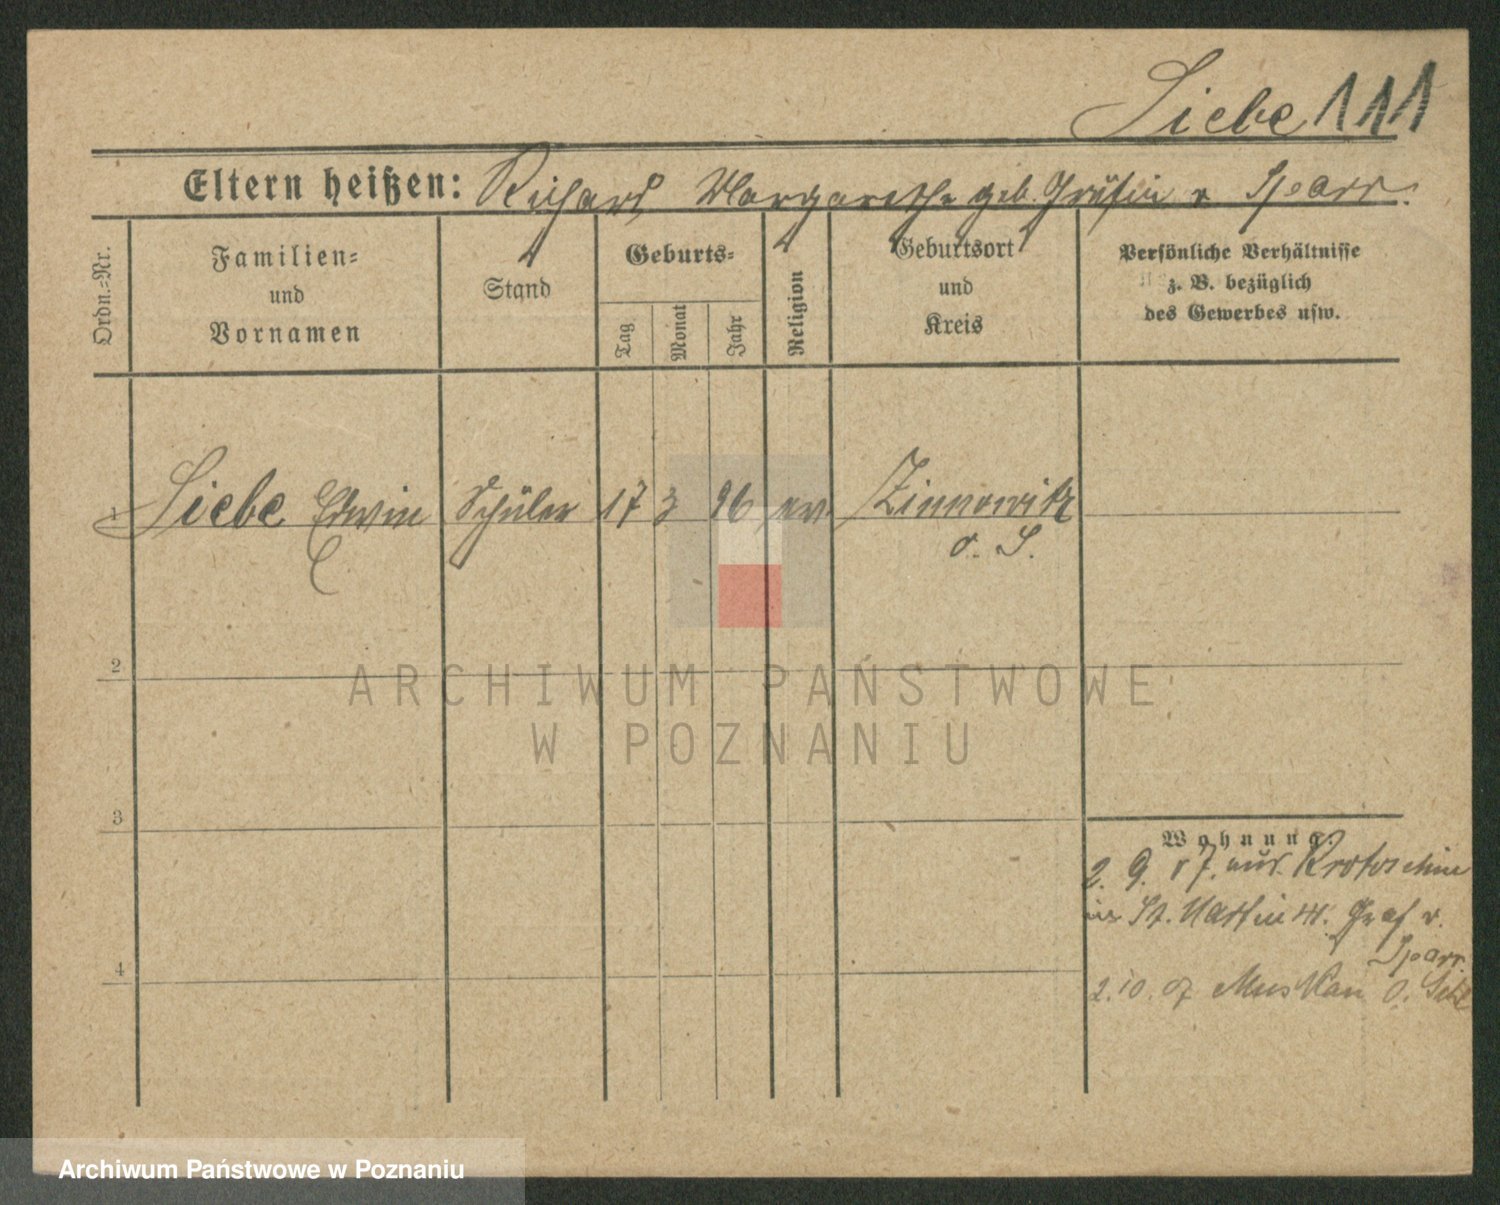 Siebe 111
Eltern heißen: Richard Margarethe geb. Gräfin v Sparr.
Ordn.-Nr.
Familien- und Vornamen
Stand
Geburts-
Tag
Monat
Jahr
Religion
Geburtsort und Kreis
Persönliche Verhältnisse
z. B. bezüglich
des Gewerbes usw.
1 Siebe Edwin Schüler 17 3 96 ev. Zinnowitz
o. S.
2
3
4
Wohnung.
2. 9. 07. aus Krotoschin
in St. Martin 41. Graf v.
Sparr
2. 10. 07 Muskau O. Schl
ARCHIWUM PAŃSTWOWE
W POZNANIU
Archiwum Państwowe w Poznaniu